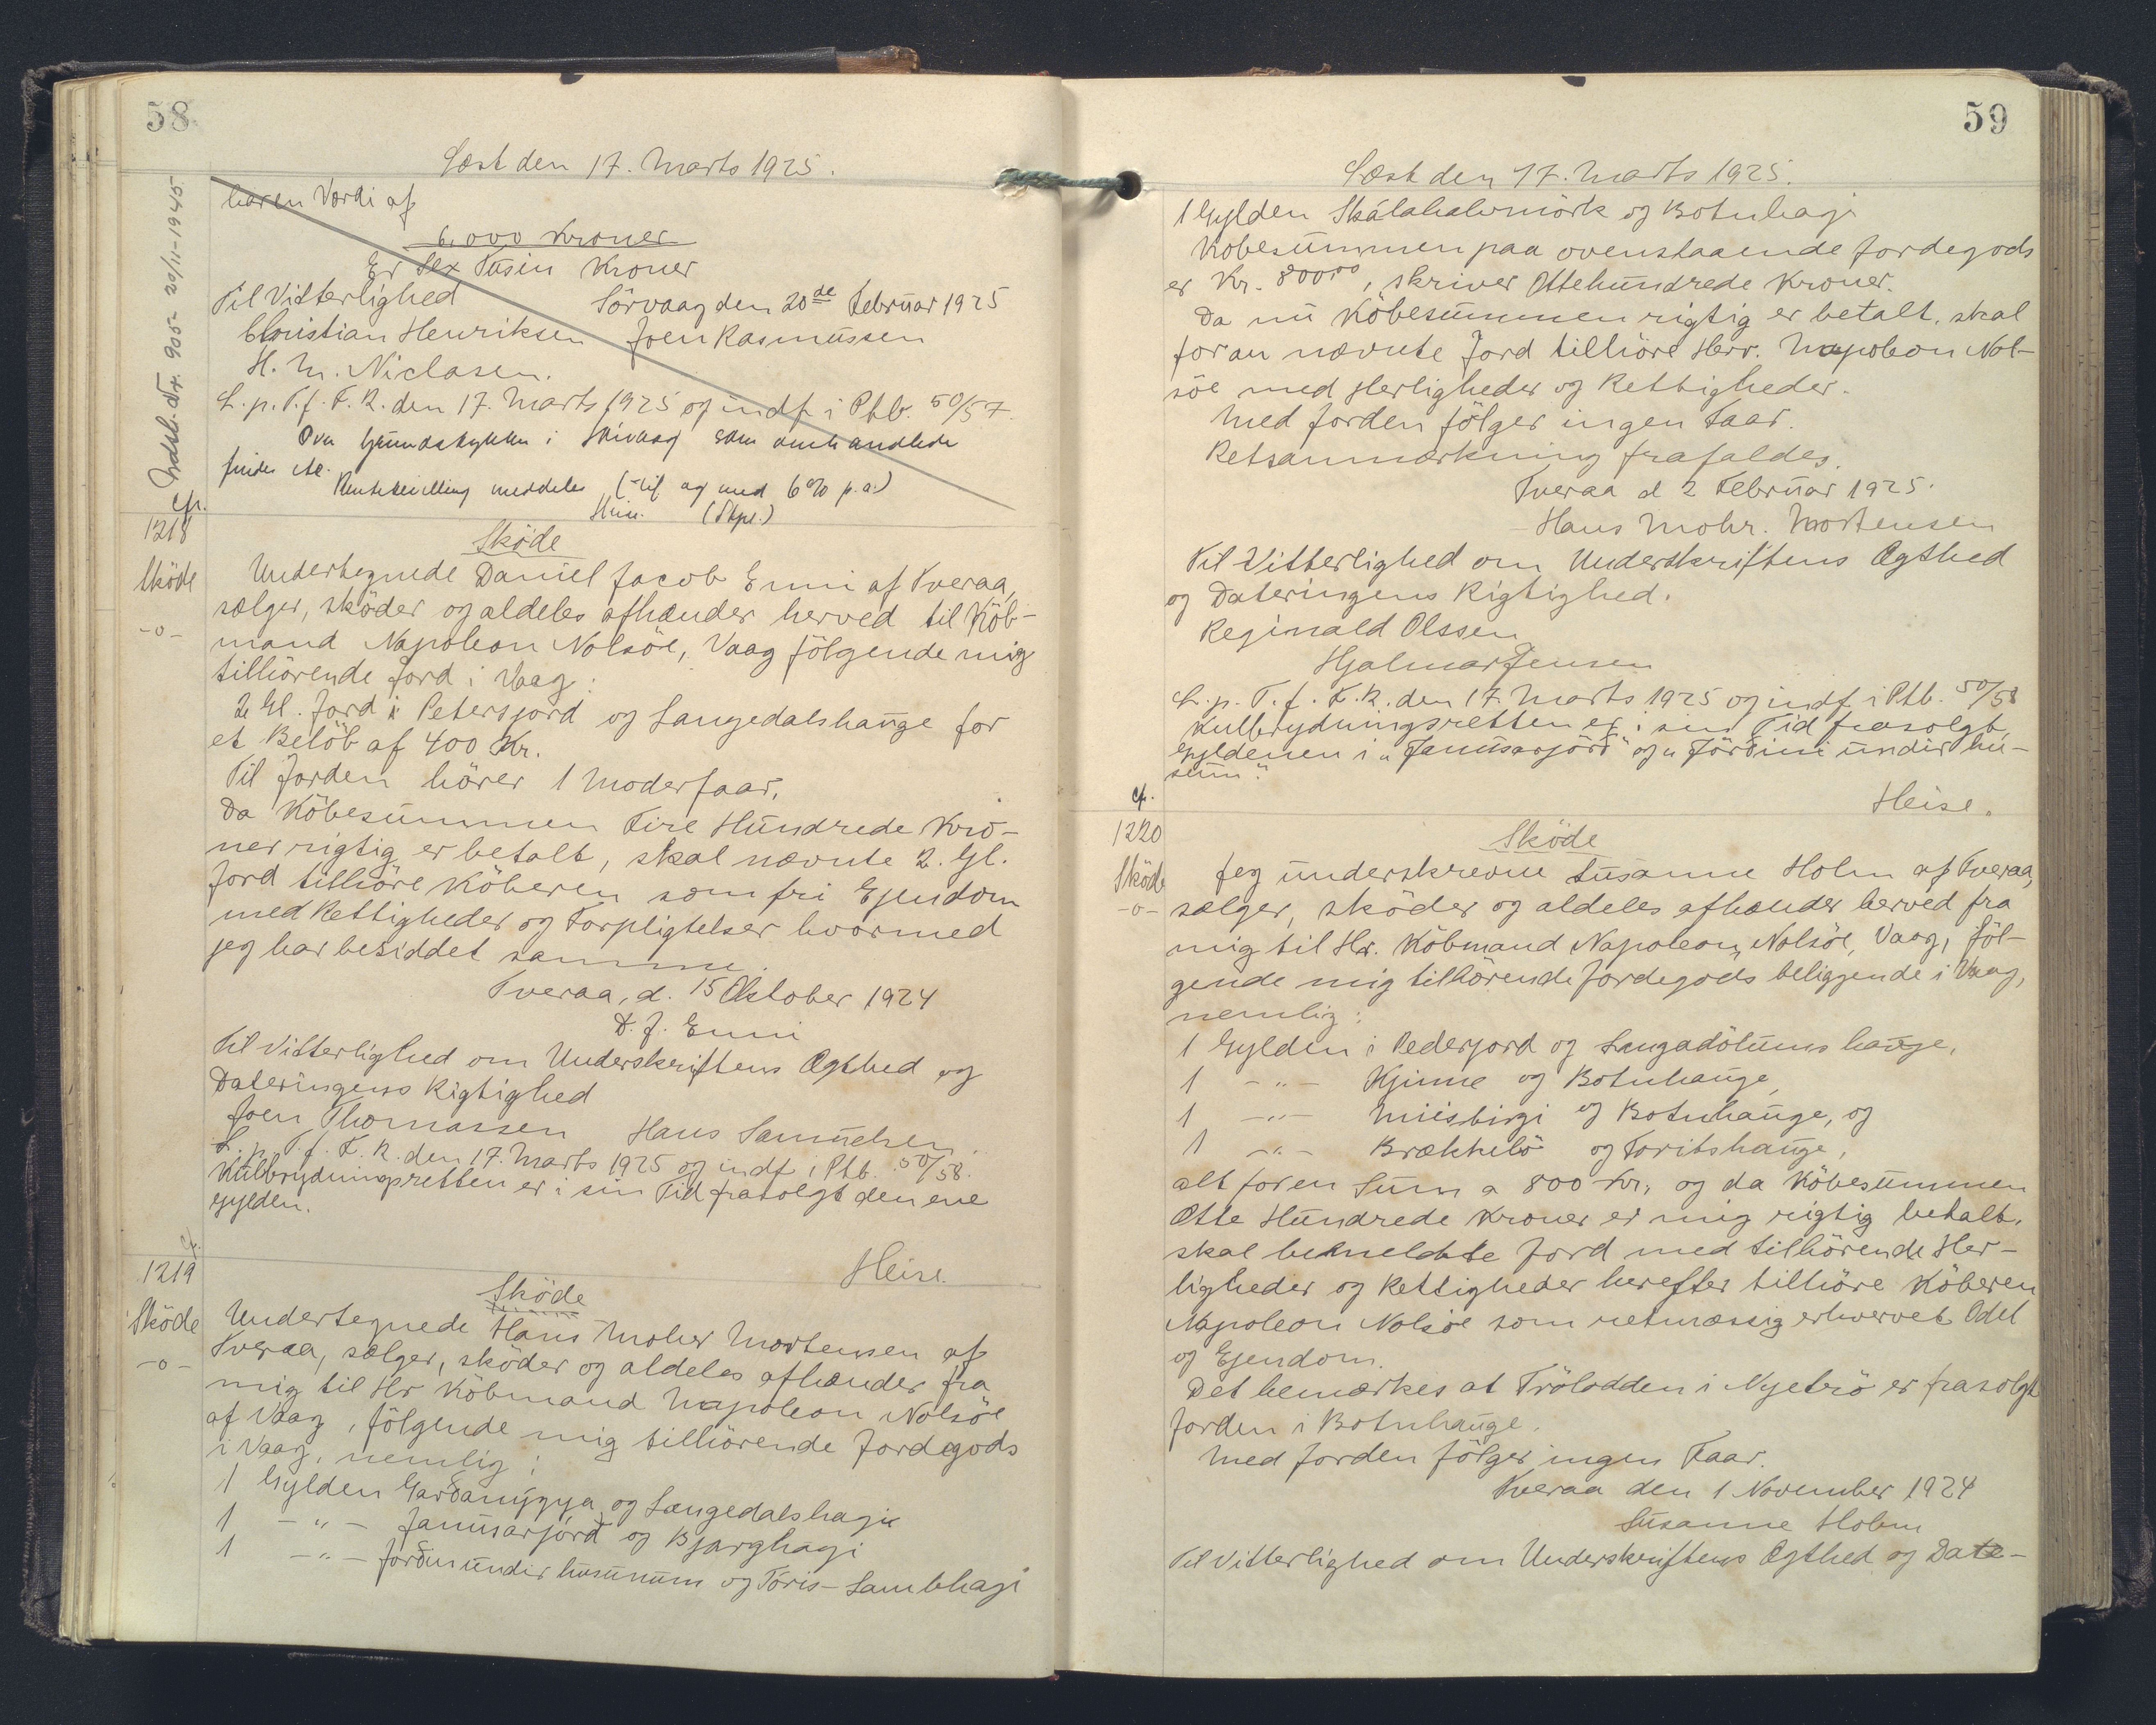 58
Læst den 17. Marts 1925.
haren Værdi af
6,000 Kroner
Er Sex Tusin Kroner
Til Vitterlighed Sörvaag den 20de Februar 1925
Christian Henriksen Joen Rasmussen
H. M. Niclasen.
L. p. T. f. F. R. den 17. Marts 1925 og indf. i Ptb. 50/57.
Ova Grundstykken i som omhandlede
findes ikke.
meddeles og med 6% p.a.)
(Stpl.)
Indsb. Nr. 905- 20/11-1945.
cfr.
1218
Sköde
-o-
Sköde
Undertegnede Daniel Jacob Enni af Tveraa,
sælger, sköder og aldeles afhænder herved til Köb-
mand Napoleon Nolsöe, Vaag fölgende mig
tilhörende Jord i Vaag:
2 Gl. Jord i Petersjord og Langedalshauge for
et Belöb af 400 Kr.
Til Jorden hörer 1 Moderfaar.
Da Köbesummen Fire Hundrede Kro-
ner rigtig er betalt, skal nævnte 2. Gl.
Jord tilhöre Köberen som fri Ejendom
med Rettigheder og Forpligtelser hvormed
jeg har besiddet samme.
Tveraa, d. 15 Oktober 1924
D. J. Enni
Til Vitterlighed om Underskriftens Ægthed og
Dateringens Rigtighed
Joen Thomassen Hans Samuelsen.
L. p. T. f. F. R. den 17. Marts 1925 og indf. i Ptb. 50/58.
Kulbrydningsretten er i sin Tid frasolgt den ene
Gylden.
Heise.
cfr.
1219
Sköde
-o-
Sköde
Undertegnede Hans Moher Mortensen af
Tveraa, sælger, sköder og aldeles afhænder fra
mig til Hr Köbmand Napoleon Nolsöe
af Vaag, fölgende mig tilhörende Jordegods
i Vaag, nemlig:
1 Gylden Garðanýgya og Langedalshagi
1 -"- Janusarjörð og Bjarghagi
1 -"- Jorðin undir húsunum og Toris-Lambhagi
59
Læst den 17. Marts 1925.
1 Gylden Skálahalvmörk og Botnhagi
Köbesummen paa ovenstaaende Jordegods
er Kr. 800,00, skriver Ottehundrede Kroner.
Da nu Köbesummen rigtig er betalt, skal
foran nævnte Jord tilhöre Herr. Napoleon Nol-
söe med Herligheder og Rettigheder.
Med Jorden fölger ingen Faar.
Retsanmærkning frafaldes.
Tveraa d 2 Februar 1925.
Hans Mohr. Mortensen
Til Vitterlighed om Underskriftens Ægthed
og Dateringens Rigtighed.
Reginald Olssen
Hjalmar Jensen
L. p. T. f. F. R. den 17. Marts 1925 og indf. i Ptb. 50/58
Kulbrydningsretten er i sin Tid frasolgt
Gyldenen i "Janusarjörð" og "Jörðini undir hu-
sum".
Heise.
cfr.
1220
Sköde
-o-
Sköde
Jeg underskrevne Susanne Holm af Tveraa,
sælger, sköder og aldeles afhænder herved fra
mig til Hr. Köbmand Napoleon Nolsöe, Vaag, föl-
gende mig tilhörende Jordegods beliggende i Vaag,
nemlig:
1 Gylden i Pederjord og Langadölums hauge,
1 -"- Kjinne og Botnhauge,
1 -"- Miisbirgi og Botnhauge, og
1 -"- Brækkelö og Toritshauge,
alt for en Sum a 800 Kr, og da Köbesummen
Otte Hundrede Kroner er mig rigtig betalt,
skal bemeldte Jord med tilhörende Her-
ligheder og Rettigheder herefter tilhöre Köberen
Napoleon Nolsöe som retmæssig erhvervet Odel
og Ejendom.
Det bemærkes at Trölodden i Nyetrö er frasolgt
Jorden i Botnhauge.
Med Jorden fölger ingen Faar.
Tveraa den 1 November 1924
Susanne Holm
Til Vitterlighed om Underskriftens Ægthed og Date-